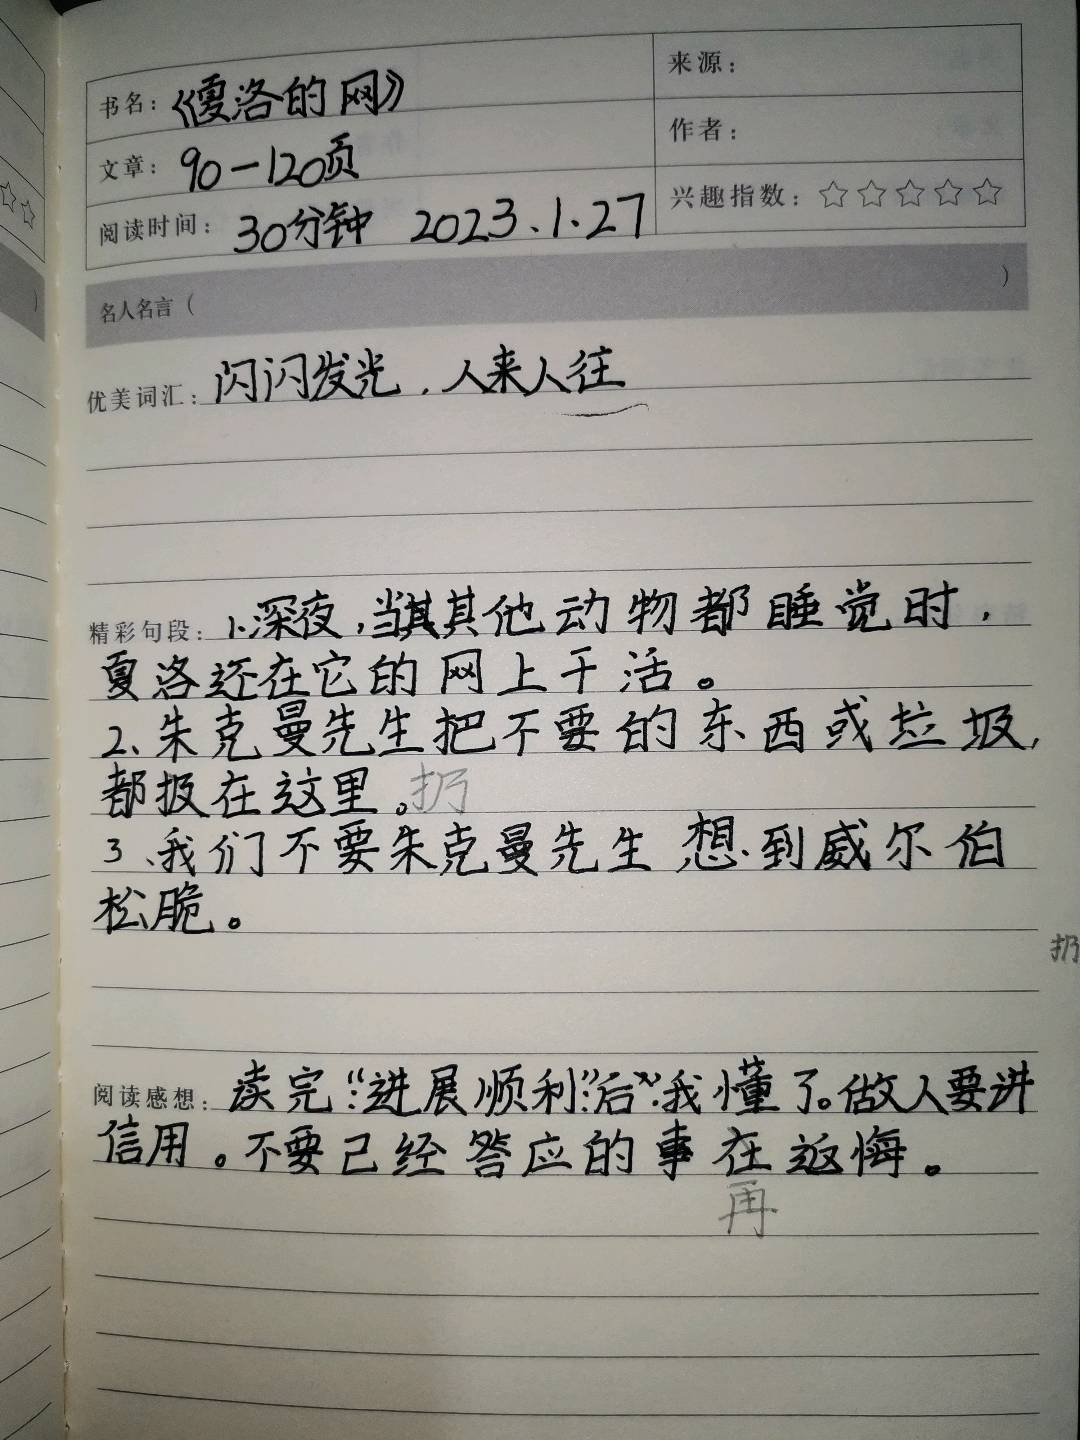 书名：《夏洛的网》
来源：
文章：90-120页
作者：
阅读时间：30分钟 2023.1.27
兴趣指数：☆☆☆☆☆
名人名言（ ）
优美词汇：闪闪发光，人来人往
精彩句段：1.深夜，当其其他动物都睡觉时，
夏洛还在它的网上干活。
2、朱克曼先生把不要的东西或垃圾，
都扱在这里。扔
3、我们不要朱克曼先生想到威尔伯
松脆。
扔
阅读感想：读完“进展顺利”后”我懂了。做人要讲
信用。不要己经答应的事在返悔。
再